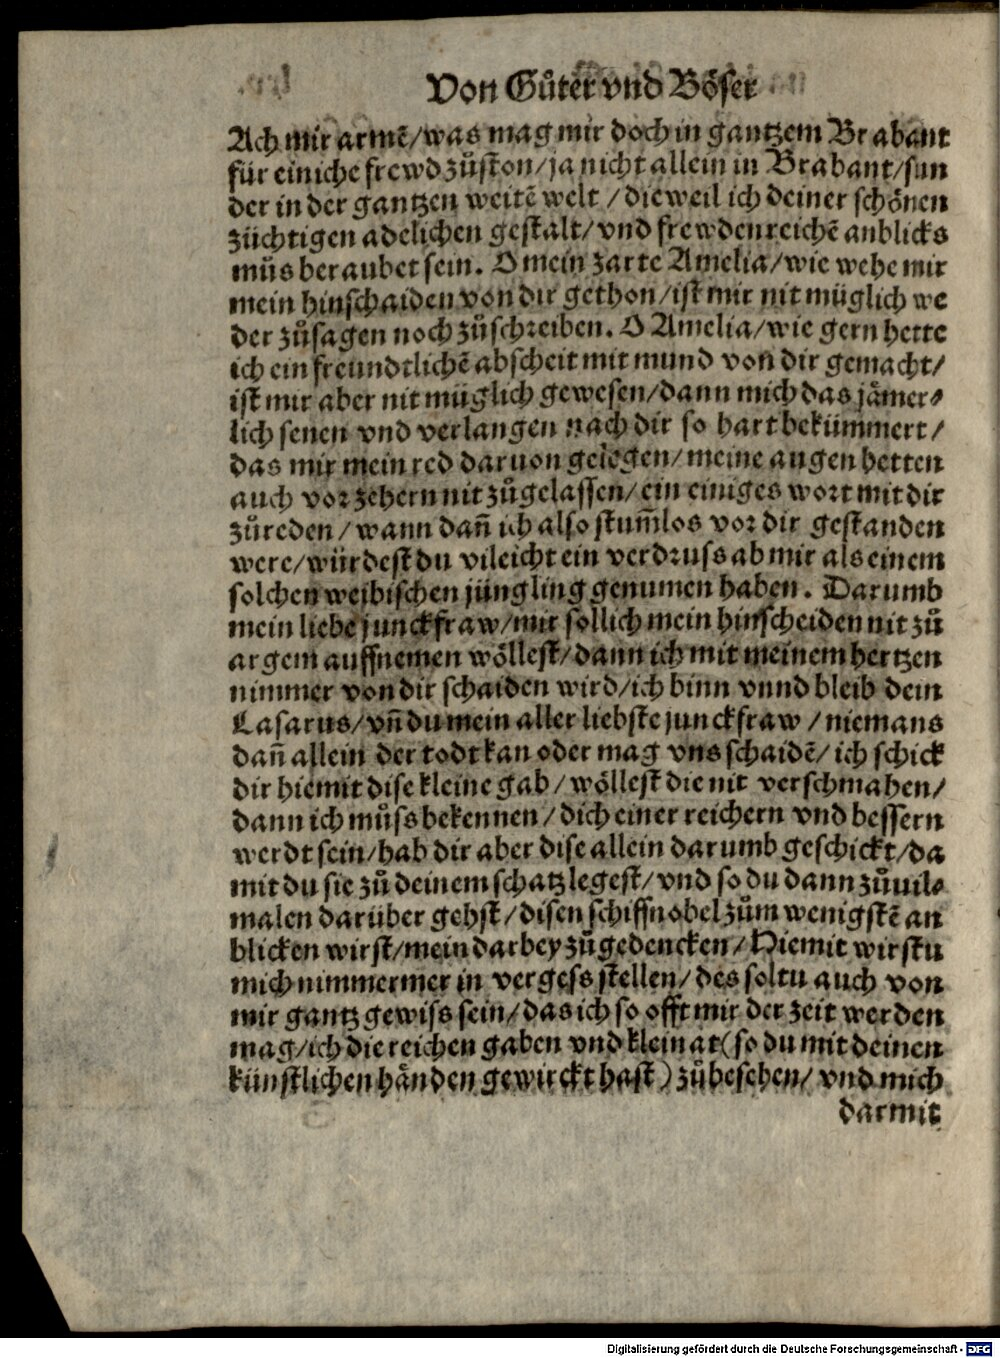 Von Gůter vnd Böser
Ach mir armē/was mag mir doch in gantzem Brabant
für einiche frewd zůston/ja nicht allein in Brabant/sun
der in der gantzen weitē welt / die weil ich deiner schönen
züchtigen adelichen gestalt/vnd frewdenreichē anblicks
můs beraubet sein. O mein zarte Amelia/wie wehe mir
mein hinschaiden von dir gethon/ist mir nit müglich we
der zůsagen noch zůschreiben. O Amelia/wie gern hette
ich ein freundtlichē abscheit mit mund von dir gemacht/
ist mir aber nit müglich gewesen/dann mich das jämer⸗
lich senen vnd verlangen nach dir so hart bekümmert/
das mir mein red daruon gelegen/meine augen hetten
auch vor zehern nit zůgelassen/ein einiges wort mit dir
zůreden/wann dañ ich also stum̄los vor dir gestanden
were/würdest du vileicht ein verdruss ab mir als einem
solchen weibischen jüngling genumen haben. Darumb
mein liebe junckfraw/mir sollich mein hinscheiden nit zů
argem auffnemen wöllest/dann ich mit meinem hertzen
nimmer von dir schaiden wird/ich binn vnnd bleib dein
Lasarus/vñ du mein aller liebste junckfraw/niemans
dañ allein der todt kan oder mag vns schaidē/ich schick
dir hiemit dise kleine gab/wöllest die nit verschmahen/
dann ich můs bekennen/dich einer reichern vnd bessern
werdt sein/hab dir aber dise allein darumb geschickt/da
mit du sie zů deinem schatz legest/vnd so du dann zůuil⸗
malen darüber gehst/disen schiffnobel zům wenigstē an
blicken wirst/mein darbey zůgedencken/Hiemit wirstu
mich nimmermer in vergess stellen/des soltu auch von
mir gantz gewiss sein/das ich so offt mir der zeit werden
mag/ich die reichen gaben vnd kleinat(so du mit deinen
künstlichen händen gewirckt hast) zůbesehen/vnd mich
darmit
Digitalisierung gefördert durch die Deutsche Forschungsgemeinschaft - DFG